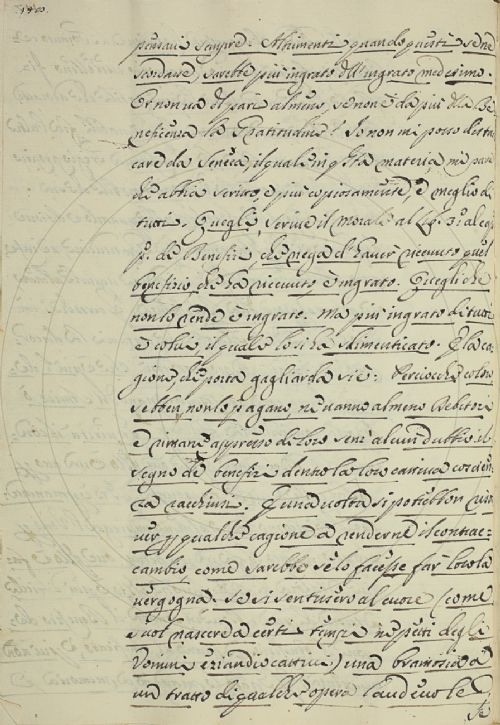 pensavi sempre. Altrimenti quando questi se ne
scordasse, sarebbe più ingrato dell'ingrato medesimo.
Or non va del pari almeno, se non è da più della Be-
neficenza la Gratitudine? Io non mi posso distac-
care da Seneca, il quale in q.sta materia mi pare
che abbia scritto, e più copiosamente, e meglio di
tutti. Quegli, scrive il morale al lib. 3.º al cap.
p.º de Benefizi, che nega d'haver ricevuto quel
benefizio, che ha ricevuto, è ingrato. Quegli che
non lo rende è ingrato. Ma più ingrato di tutti
è colui, il quale lo si ha sdimenticato. E la ca-
gione, che porta gagliarda si è: Perciocchè coloro
sebben non lo pagano, ne vanno almeno debitori
e rimane appresso di loro senz'alcun dubbio il
segno de' benefizi dentro la loro cattiva coscien-
za racchiusi. E una volta si potrebbon
per qualche cagione a renderne il contrac-
cambio, come sarebbe se lo facesse far loro la
vergogna. Se si sentissero al cuore (come
suol nascere a certi tempi ne' petti degli
Uomini eziandio cattivi) una bramosia a
un tratto di qualche opera laudevole
Se